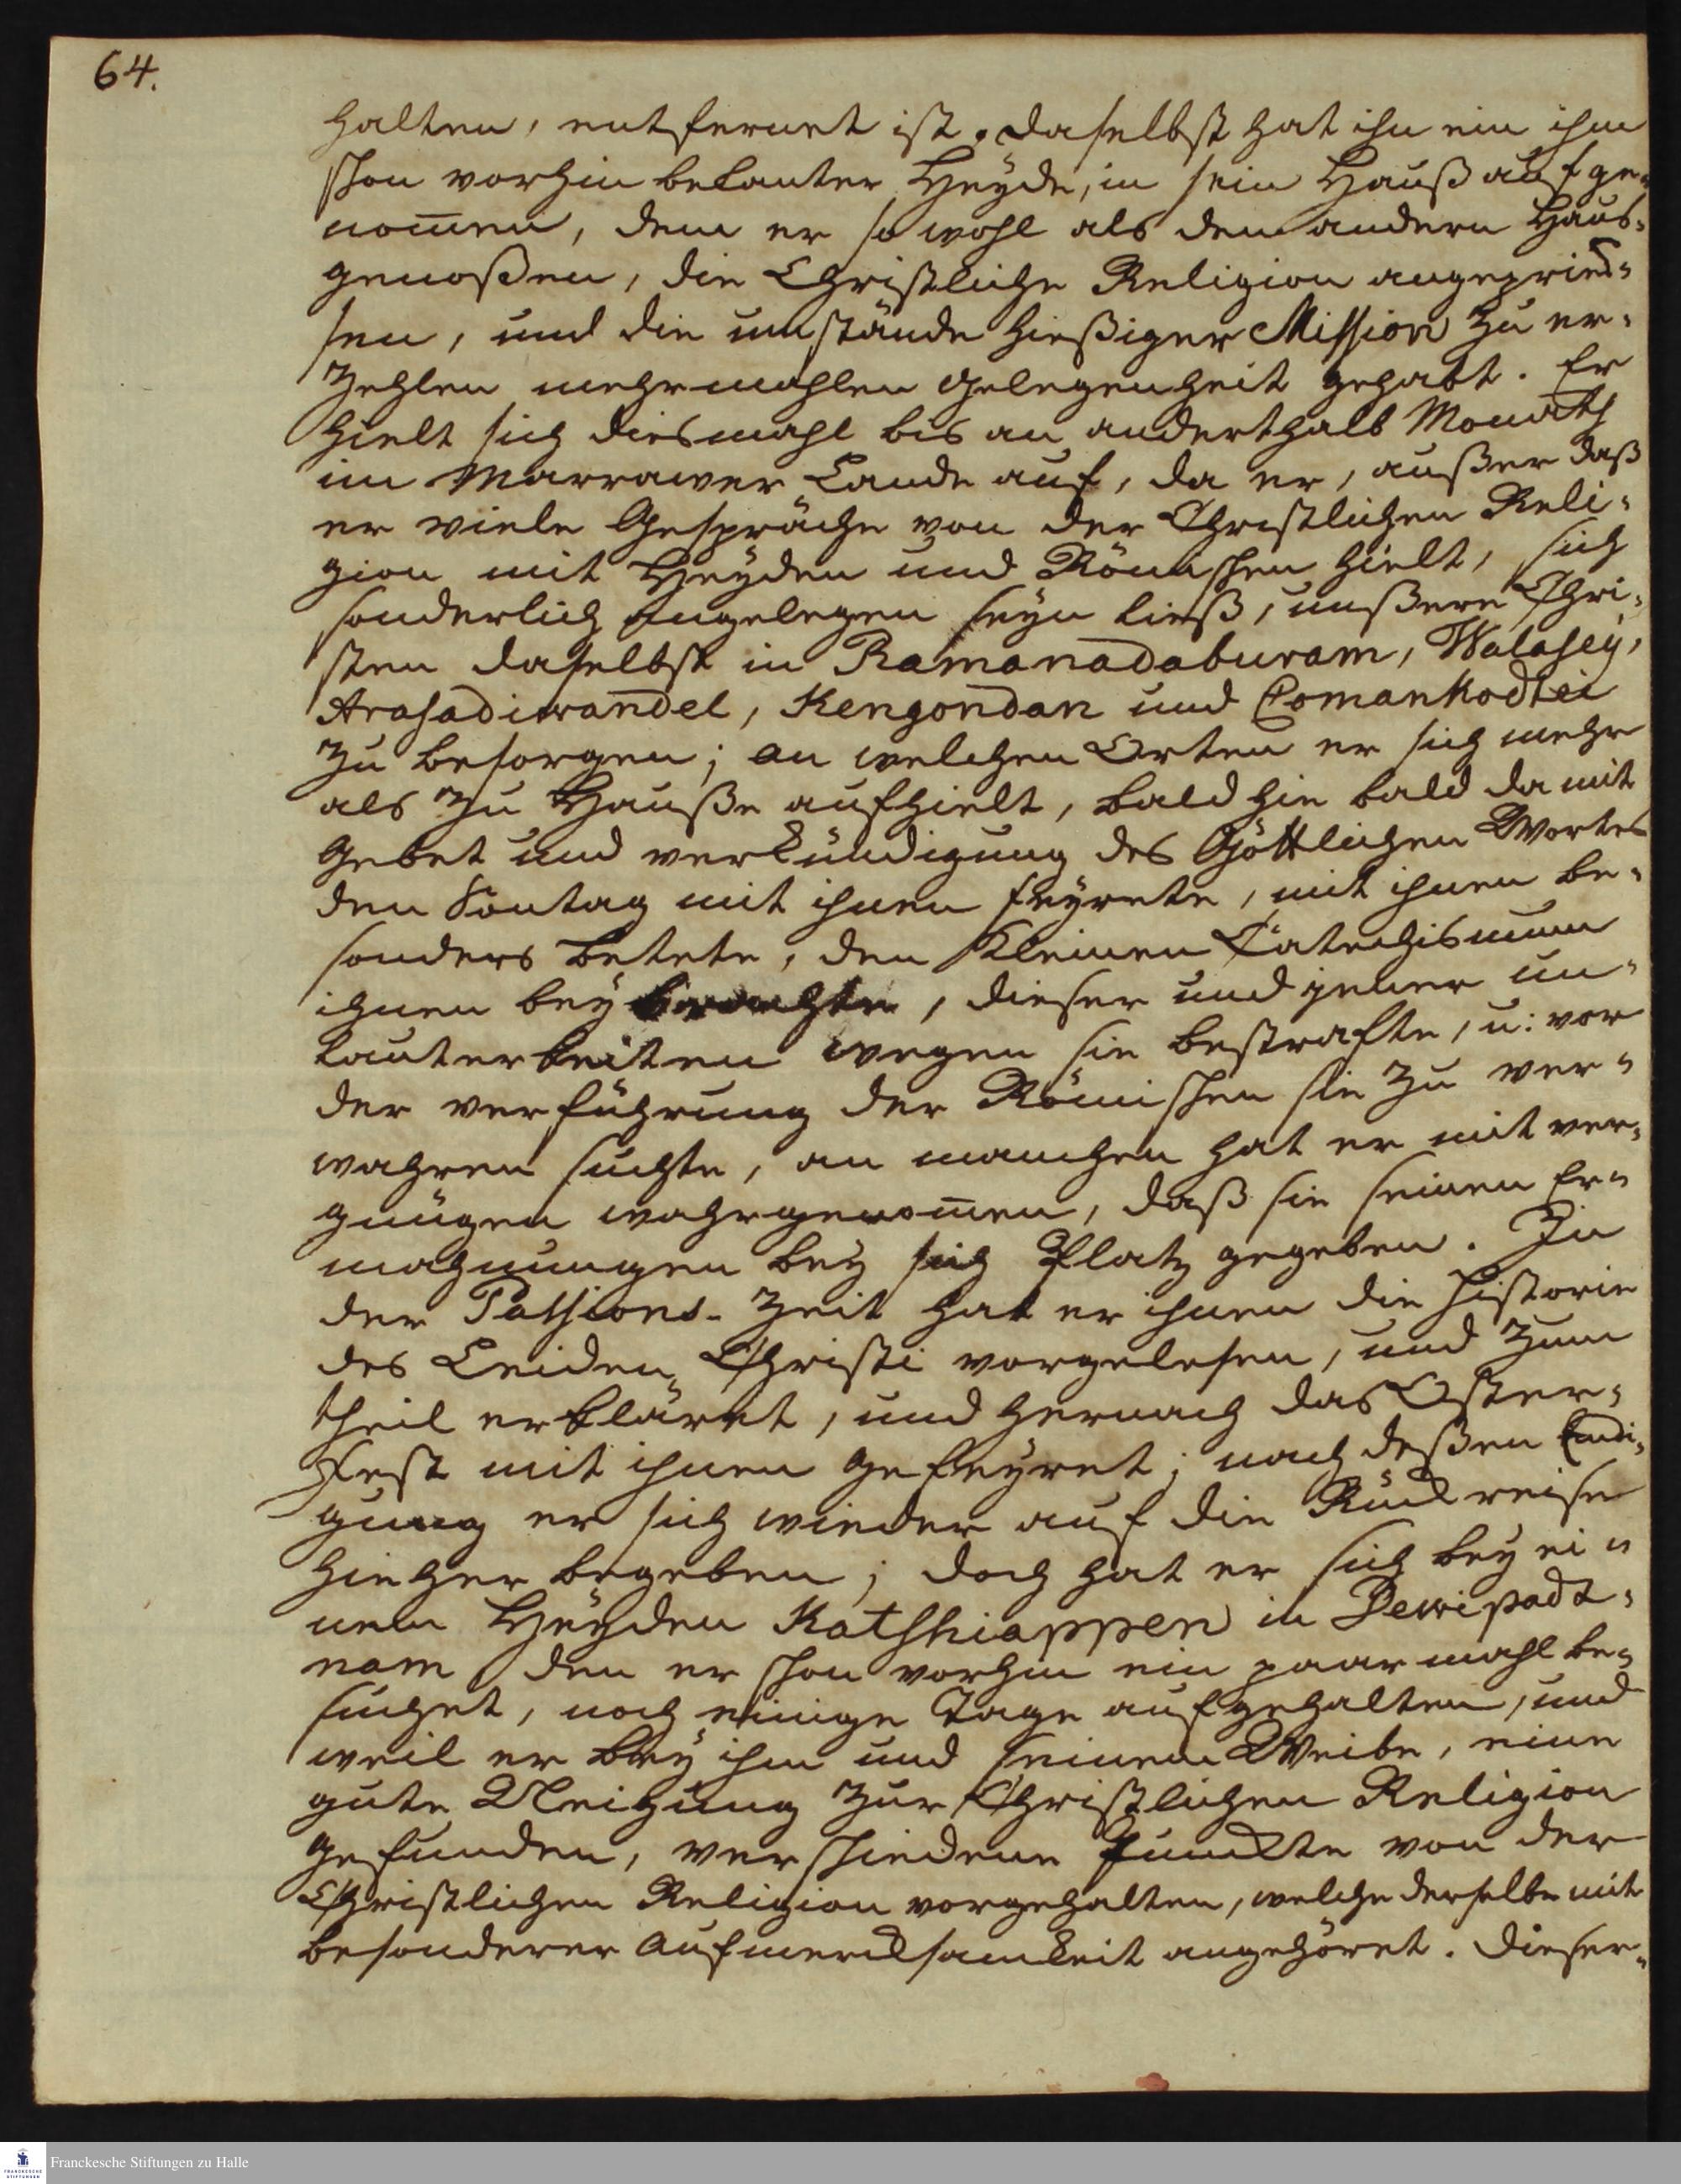 64.
halten, entfernet ist. daselbst hat ihn ein ihm
schon vorhin bekanter Heyde, in sein Hauß aufge-
nom̄en, dem er so wohl als den andern Haus-
genoßen, die Christliche Religion angeprie-
sen, und die umstände hießiger Mission zu er-
zehlen mehrmahlen gelegenheit gehabt. Er
hielt sich diesmahl bis an anderthalb Monath
im Marrawer Lande auf, da er, außer daß
er viele Gespräche von der Christlichen Reli-
gion mit Heyden und Römischen hielt, sich
sonderlich angelegen seyn ließ, unßere Chri-
sten daselbst in Ramanadaburam, Walasey,
Arasadiwandel, Kengondan und Comankodtei
zu besorgen; an welchen Orten er sich mehr
als zu Hauße aufhielt, bald hie bald da mit
Gebet und verkündigung des Göttlichen Wortes
den Sontag mit ihnen feyrete, mit ihnen be-
sonders betete, den Kleinen Catechismum
ihnen bey brachte, dieser und jener un-
lauterkeiten wegen sie bestrafte, u: vor
der verführung der Römischen sie zu ver-
wahren suchte, an manchen hat er mit ver-
gnügen wahrgenom̄en, daß sie seinen Er-
mahnungen bey sich Platz gegeben. In
der Passions-Zeit hat er ihnen die Historie
des Leiden Christi vorgelesen, und zum
theil erkläret, und hernach das Oster-
Fest mit ihnen gefeyret; nach deßen Endi-
gung er sich wieder auf die Rückreise
hieher begeben; doch hat er sich bey ei-
nem Heyden Katshiappen in Dewipadt-
nam den er schon vorhin ein paar mahl be-
suchet, noch einige Tage aufgehalten, und
weil er bey ihm und seinem Weibe, eine
gute Neigung zur Christlichen Religion
gefunden, verschiedene Punckte von der
Christlichen Religion vorgehalten, welche derselbe mit
besonderer Aufmercksamkeit angehöret. Dieser-
Franckesche Stiftungen zu Halle